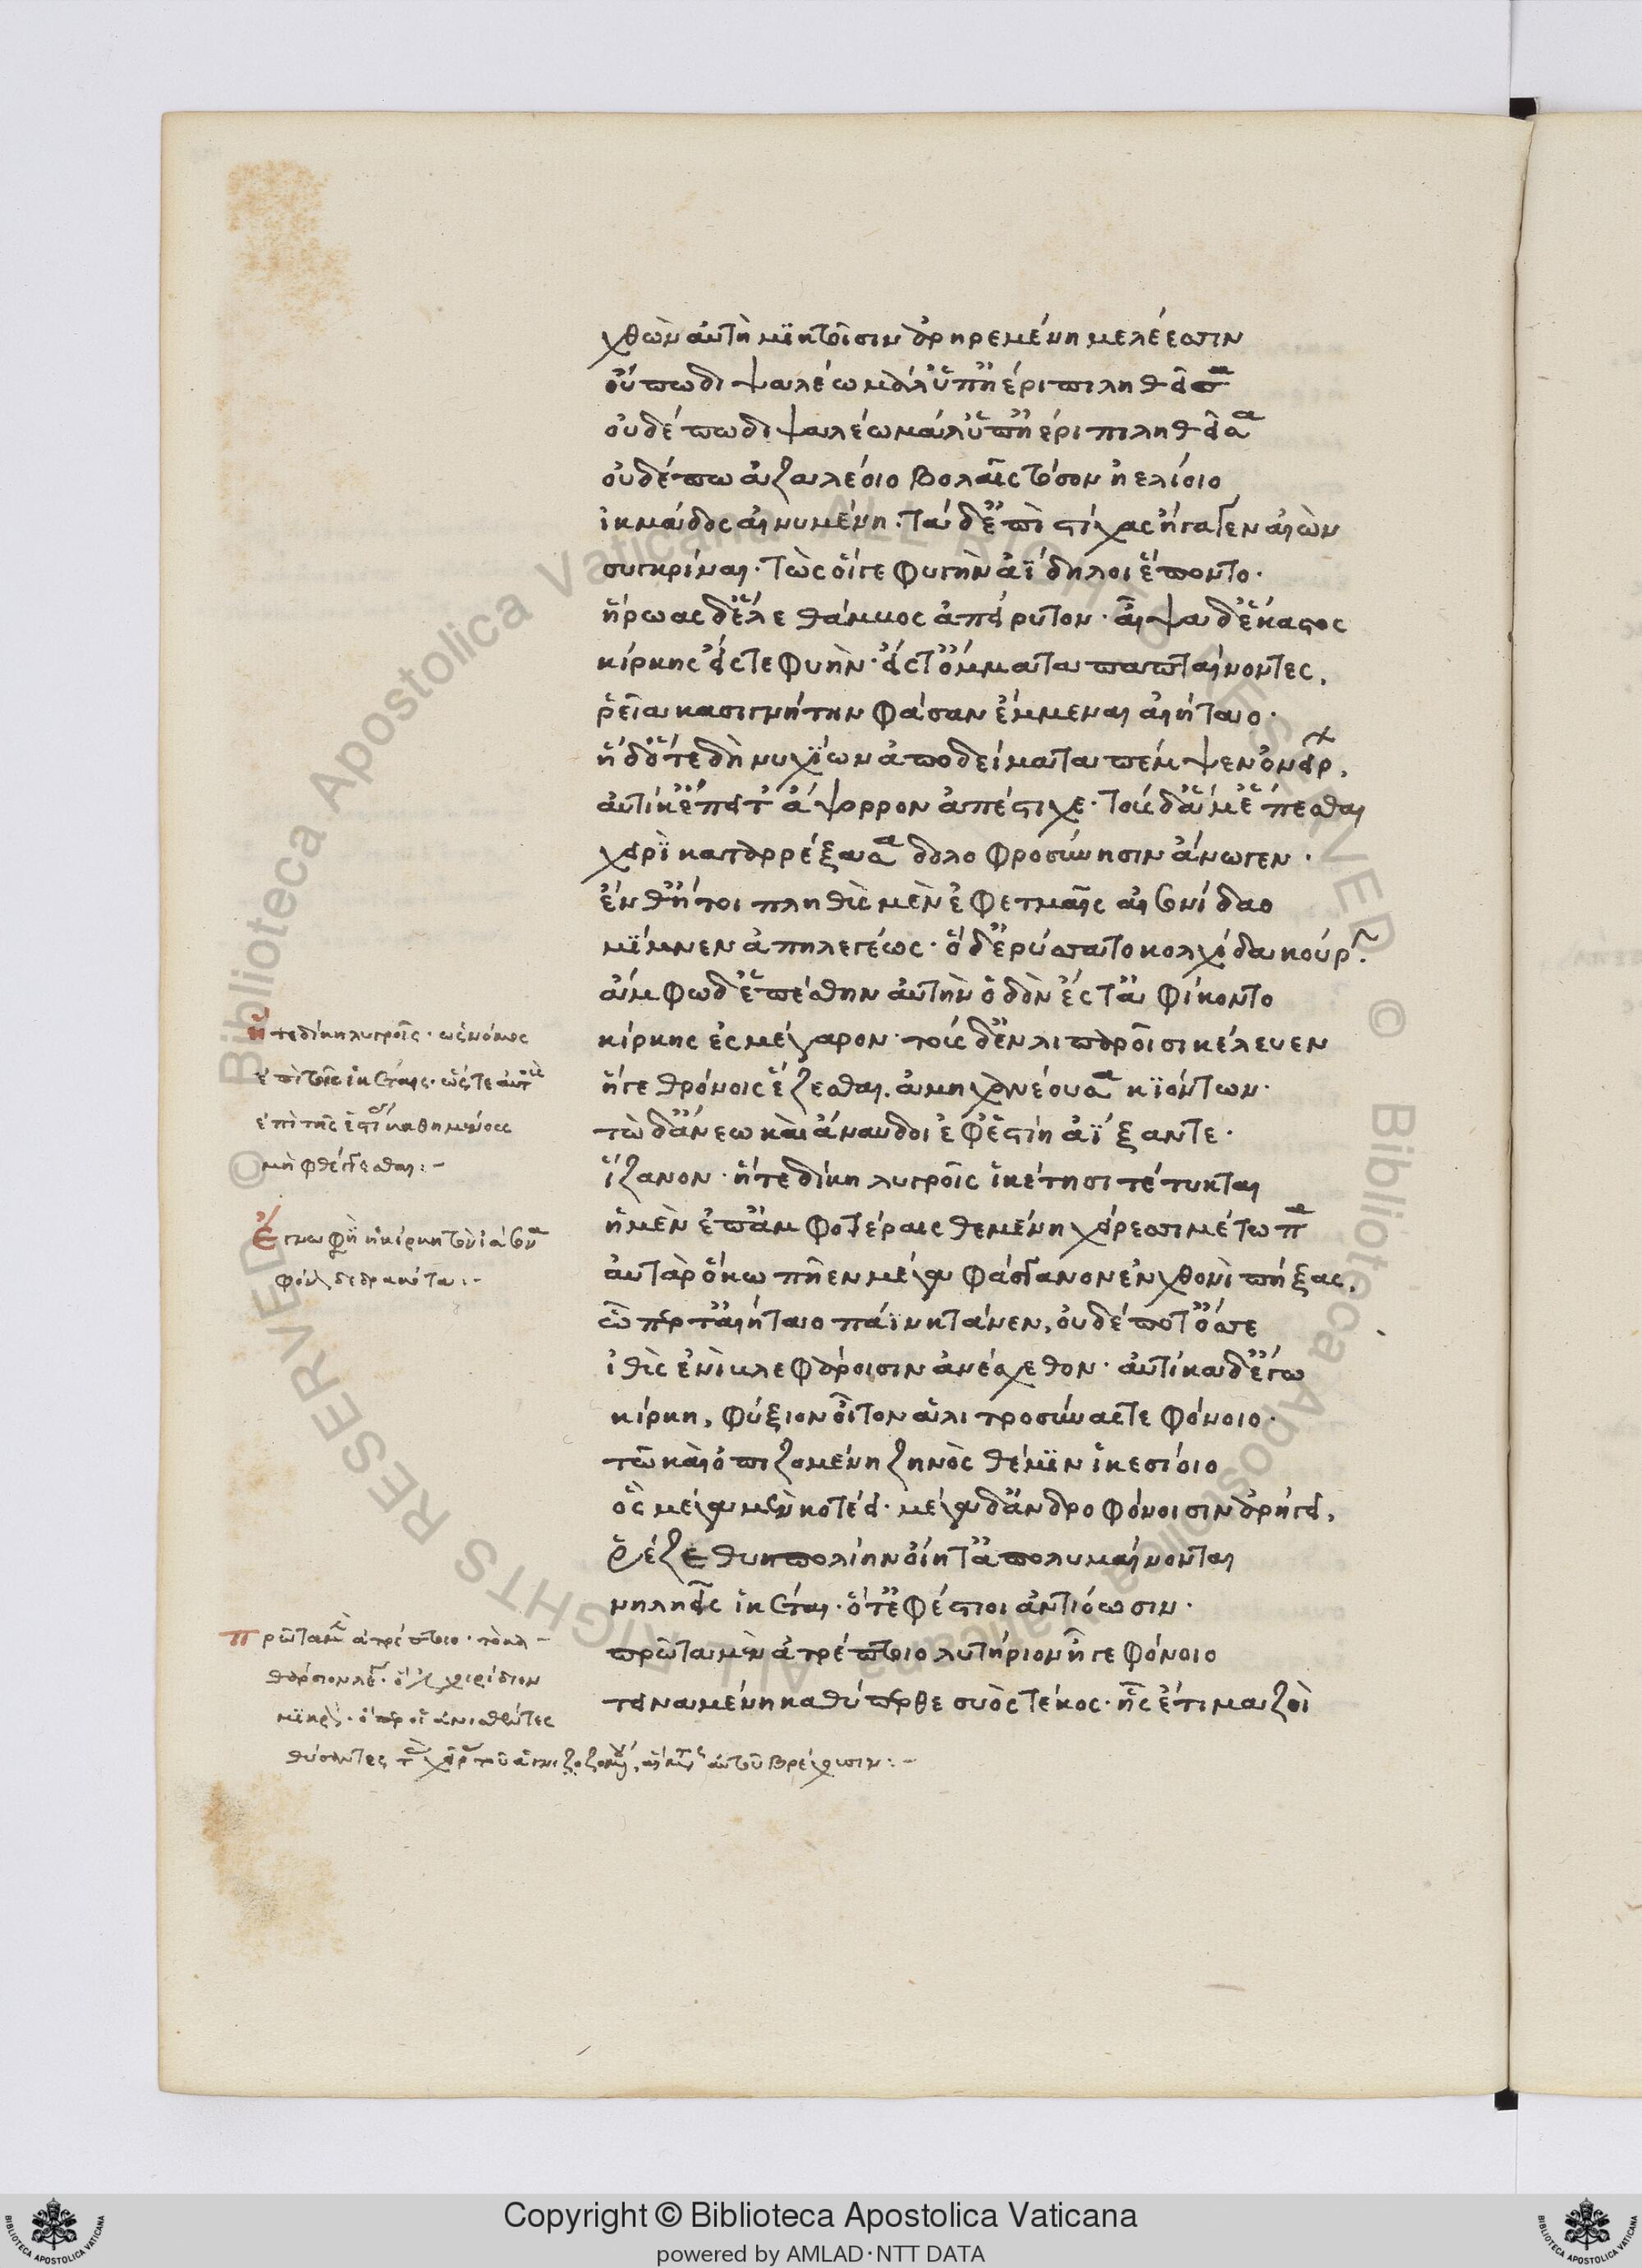 χθὼν αὐτὴ μικτοῖσιν ἀρηρεμένη μελέεσσιν
οὔπω διψαλέῳ μάλ' ὑπ' ἠέρι πιληθεῖσα
οὐδέπω διψαλέω μάλ' ὑπ' ἠέρι πιληθεῖσα
οὐδέπω ἀζαλέοιο βολαῖς τόσον ἠελίοιο
ἰκμάδος αἰνυμένη. τὰ δ' ἐπὶ στίχας ἤγαγεν αἰὼν
συγκρίνας. τὼς οἵγε φυγὴν ἀΐδηλοι ἕποντο.
ἥρωας δ' ἕλε θάμβος ἀπείριτον. αἶψα δ' ἕκαστος
κίρκης εἴς τε φυὴν. εἴς τ' ὄμματα παπταίνοντες,
ῥεῖα κασιγνήτην φάσαν ἔμμεναι αἰήταο.
ἡ δ' ὅτε δὴ νυχίων ἀπὸ δείματα πέμψεν ὀνείρων,
αὐτίκ' ἔπειτ' ἄψορρον ἀπέστιχε. τοὺς δ' ἅμ' ἕπεσθαι
χειρὶ καταρρέξασα δολοφροσύνησιν ἄνωγεν.
ἔνθ' ἤτοι πληθὺς μὲν ἐφετμαῖς αἰσονίδαο
μίμνεν ἀπηλεγέως. ὁ δ' ἐρύσσατο κολχίδα κούρην.
ἄμφω δ' ἑσπέσθην αὐτὴν ὁδὸν ἔς τ' ἀφίκοντο
κίρκης ἐς μέγαρον. τοὺς δ' ἐν λιπαροῖσι κέλευεν
ἥγε θρόνοις ἕζεσθαι. ἀμηχανέουσα κιόντων.
τὼ δ' ἄνεω καὶ ἄναυδοι ἐφ' ἑστίῃ ἀΐξαντε.
ἵζανον. ἥτε δίκη λυγροῖς ἱκέτησι τέτυκται
ἡ μὲν ἐπ' ἀμφοτέραις θεμένη χείρεσσι μέτωπα
αὐτὰρ ὁ κωπῆεν μέγα φάσγανον ἐν χθονὶ πήξας,
ᾧπερ τ' αἰήταο πάϊν κτάνεν, οὐδέποτ' ὄσσε
ἰθὺς ἐνὶ βλεφάροισιν ἀνέσχεθον. αὐτίκα δ' ἔγνω
κίρκη, φύξιον οἶτον ἀλιτροσύνας τε φόνοιο.
τῶ καὶ ὀπιζομένη ζηνὸς θέμιν ἱκεσίοιο
ὃς μέγα μὲν κοτέει. μέγα δ' ἀνδροφόνοισιν ἀρήγει,
ῥέζε θυηπολίην οἵη τ' ἀπολυμαίνονται
νηλῃεῖς ἱκέται. ὅτ' ἐφέστιοι ἀντιόωσιν.
πρῶτα μὲν ἀτρέπτοιο λυτήριον ἥγε φόνοιο
τειναμένη καθύπερθε συὸς τέκος. ἧς ἔτι μαζοὶ
ἥτε δίκη λυγροῖς. ὡς νόμος
ἐπὶ τοῖς ἱκέταις. ὥστε αὐτοὺς
ἐπὶ τῆς ἑστίας καθημένους
μὴ φθέγγεσθαι:-
ἔγνω φησὶ ἡ κίρκη τὸν ἰάσονα
φόνον δεδρακότα:-
πρῶτα μὲν ἀτρέπτοιο. τὸ κα-
θάρσιον λέγει. χοιρίδιον
μικρὸν. ὅπερ οἱ ἁγνισθέντες
θύσαντες τὰς χεῖρας τοῦ ἁγνιζομένου, αἵματι αὐτοῦ βρέχουσιν:-
Copyright © Biblioteca Apostolica Vaticana
powered by AMLAD·NTT DATA